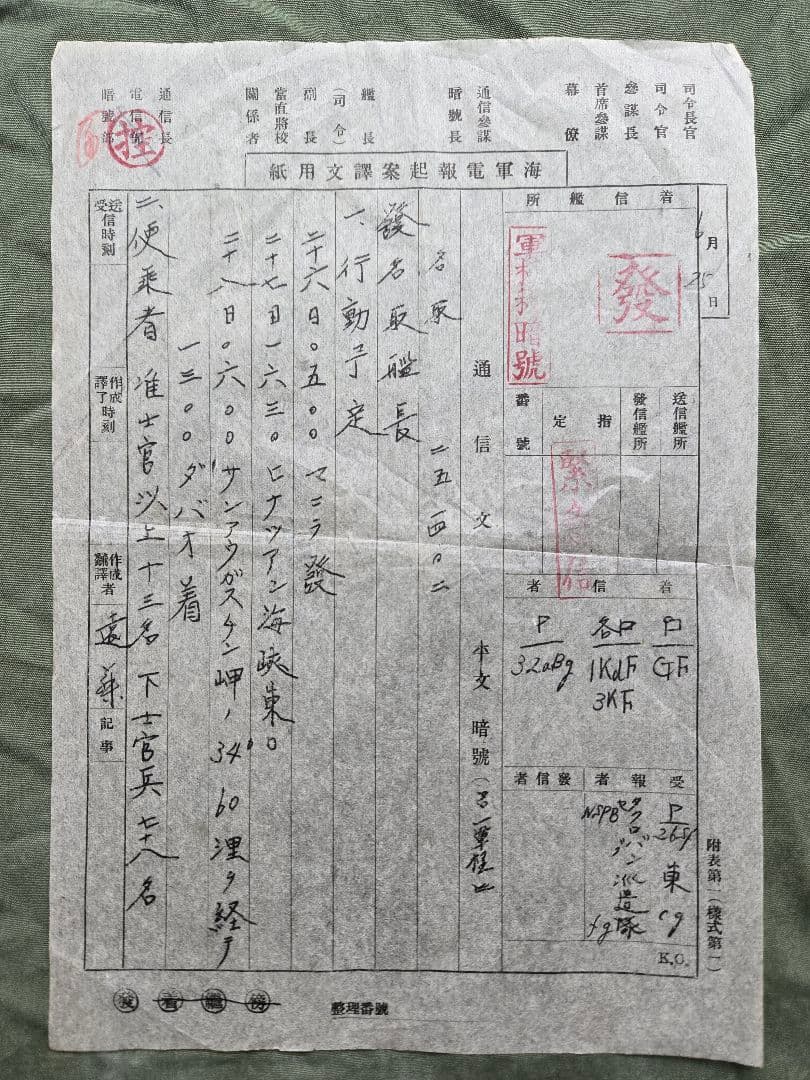 司令長官
司令官
參謀長
首席參謀
幕僚
通信參謀
暗號長
艦長
(司令)
副長
當直將校
關係者
通信長
電信
暗號
控
海軍電報起案譯文用紙
6月25日
着信艦所
發
軍機
暗號
送信艦所
發信艦所
指定
番號
緊
信
着信者
GF
各
1KdF
3KF
32aBg
受報者
發信者
東
タクロバン派遣隊
K.O.
附表第一(樣式第一)
通信文 平文 暗號
名取 二五一四〇二
發 名取艦長
一、行動予定
二十六日〇五〇〇 マニラ發
二十七日一六三〇 ヒナツアン海峡東口
二十八日〇六〇〇 サンアウガスチン岬ノ 34° 60浬ヲ経テ
一三〇〇 ダバオ着
二、便乘者 准士官以上十三名 下士官兵七十八名
送受信時刻
作成譯了時刻
作成飜譯者 遠藤
記事
發着繼傍
整理番號